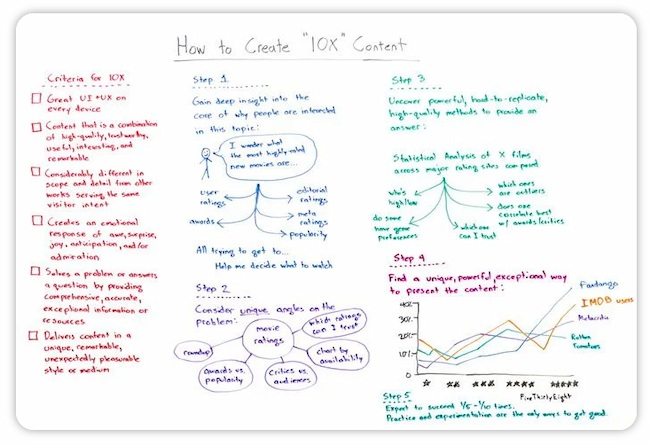 How to Create "10X" Content
Criteria for 10X
Great UI + UX on
every device
Content that is a combination
of high-quality, trustworthy,
useful, interesting, and
remarkable
Considerably different in
scope and detail from other
works serving the same
visitor intent
Creates an emotional
response of awe, surprise,
joy, anticipation, and/or
admiration
Solves a problem or answers
a question by providing
comprehensive, accurate,
exceptional information or
resources
Delivers content in a
unique, remarkable,
unexpectedly pleasurable
style or medium
Step 1
Gain deep insight into the
core of why people are interested
in this topic:
I wonder what
the most highly-rated
new movies are...
user
ratings
editorial
ratings
awards
meta
ratings
popularity
All trying to get to...
Help me decide what to watch
Step 2
Consider unique angles on the
problem:
movie
ratings
which ratings
can I trust
roundup
chart by
availability
awards vs.
popularity
critics vs.
audiences
Step 3
Uncover powerful, hard-to-replicate,
high-quality methods to provide an
answer:
Statistical Analysis of X films
across major rating sites compared
who's
high/low
which ones
are outliers
do some
have genre
preferences
does one
correlate best
w/ awards/critics
which one
can I trust
Step 4
Find a unique, powerful, exceptional way
to present the content:
40%
30%
20%
10%
0
Fandango
IMDB users
Metacritic
Rotten
Tomatoes
FiveThirtyEight
Step 5
Expect to succeed 1/5 - 1/10 times.
Practice and experimentation are the only ways to get good.